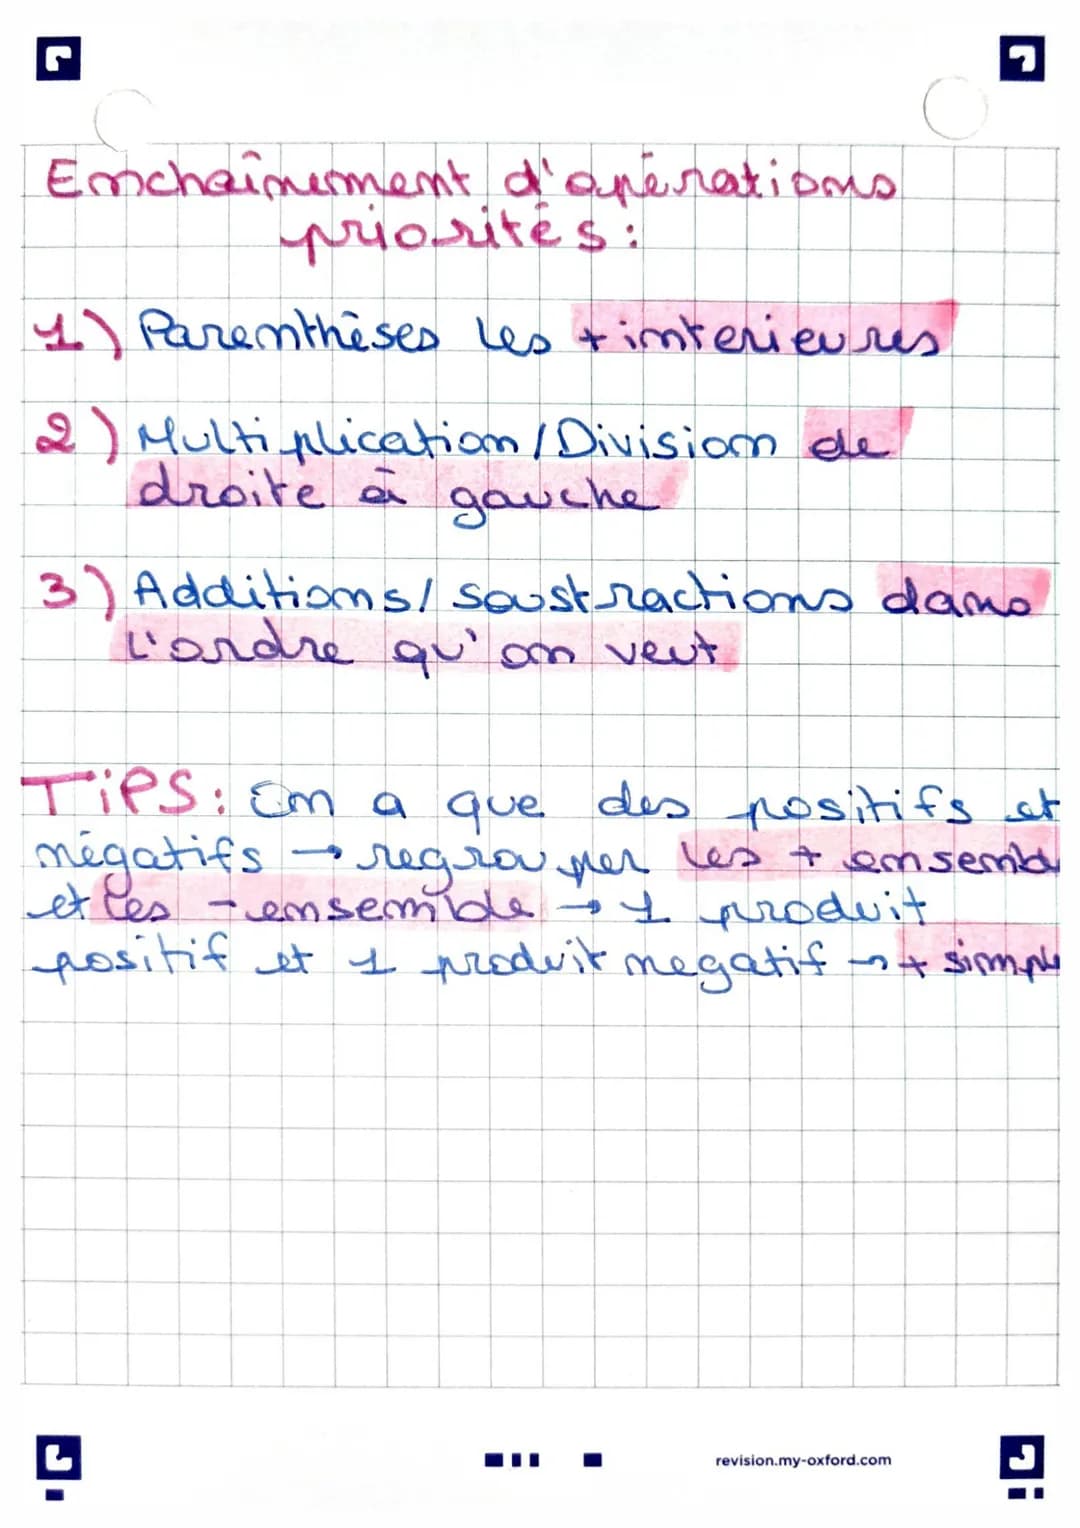 Enchaînement d'opérations
priorités :
1) Parenthèses les + interieures
2) Multiplication / Division de
droite à gauche
3) Additions / soustractions dans
l'ordre qu'on veut
TiPS : On a que des positifs et
négatifs → regrouper les + ensembl
et les - ensemble → 1 produit
positif et 1 produit negatif → + simple
revision.my-oxford.com